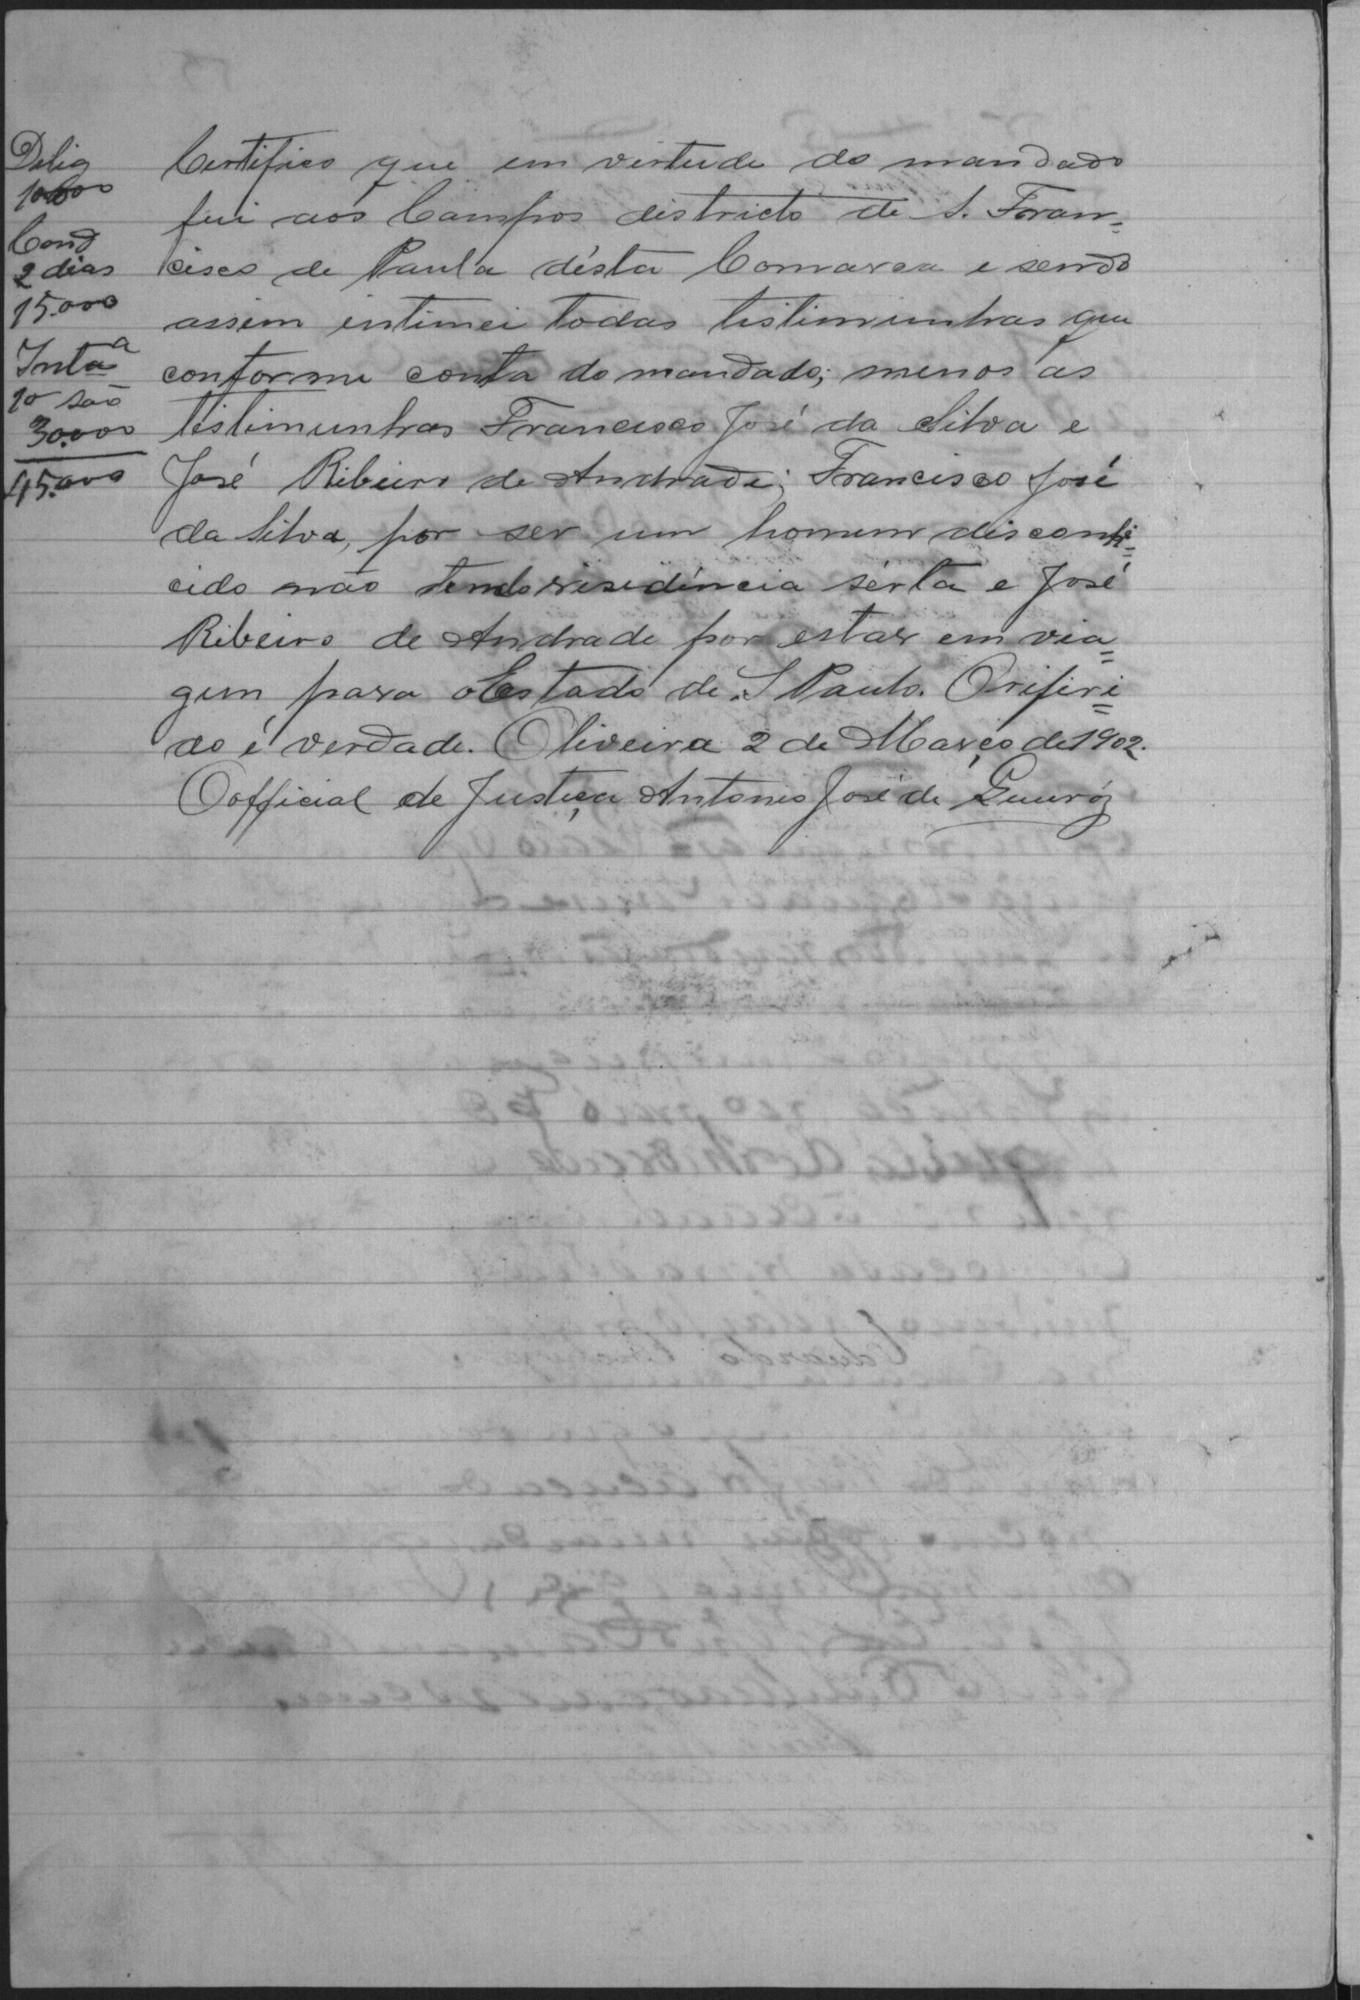 Delig
10000
Cond
2 dias
15.000
Inta a
10 são
30.000
45.000
Certifico que em virtude do mandado
fui aos Campos districto de S. Fran=
cisco de Paula désta Comarca e sendo
assim intimei todas tistimunhas que
conforme conta do mandado; menos as
tistimunhas Francisco José da Silva e
José Ribeiro de Andrade; Francisco José
da Silva, por ser um homem disconhi=
cido não tendo risidência sérta e José
Ribeiro de Andrade por estar em via=
gem para o Estado de S Paulo. O rifiri=
do é verdade. Oliveira 2 de Março de 1902.
O official de Justiça Antonio José de